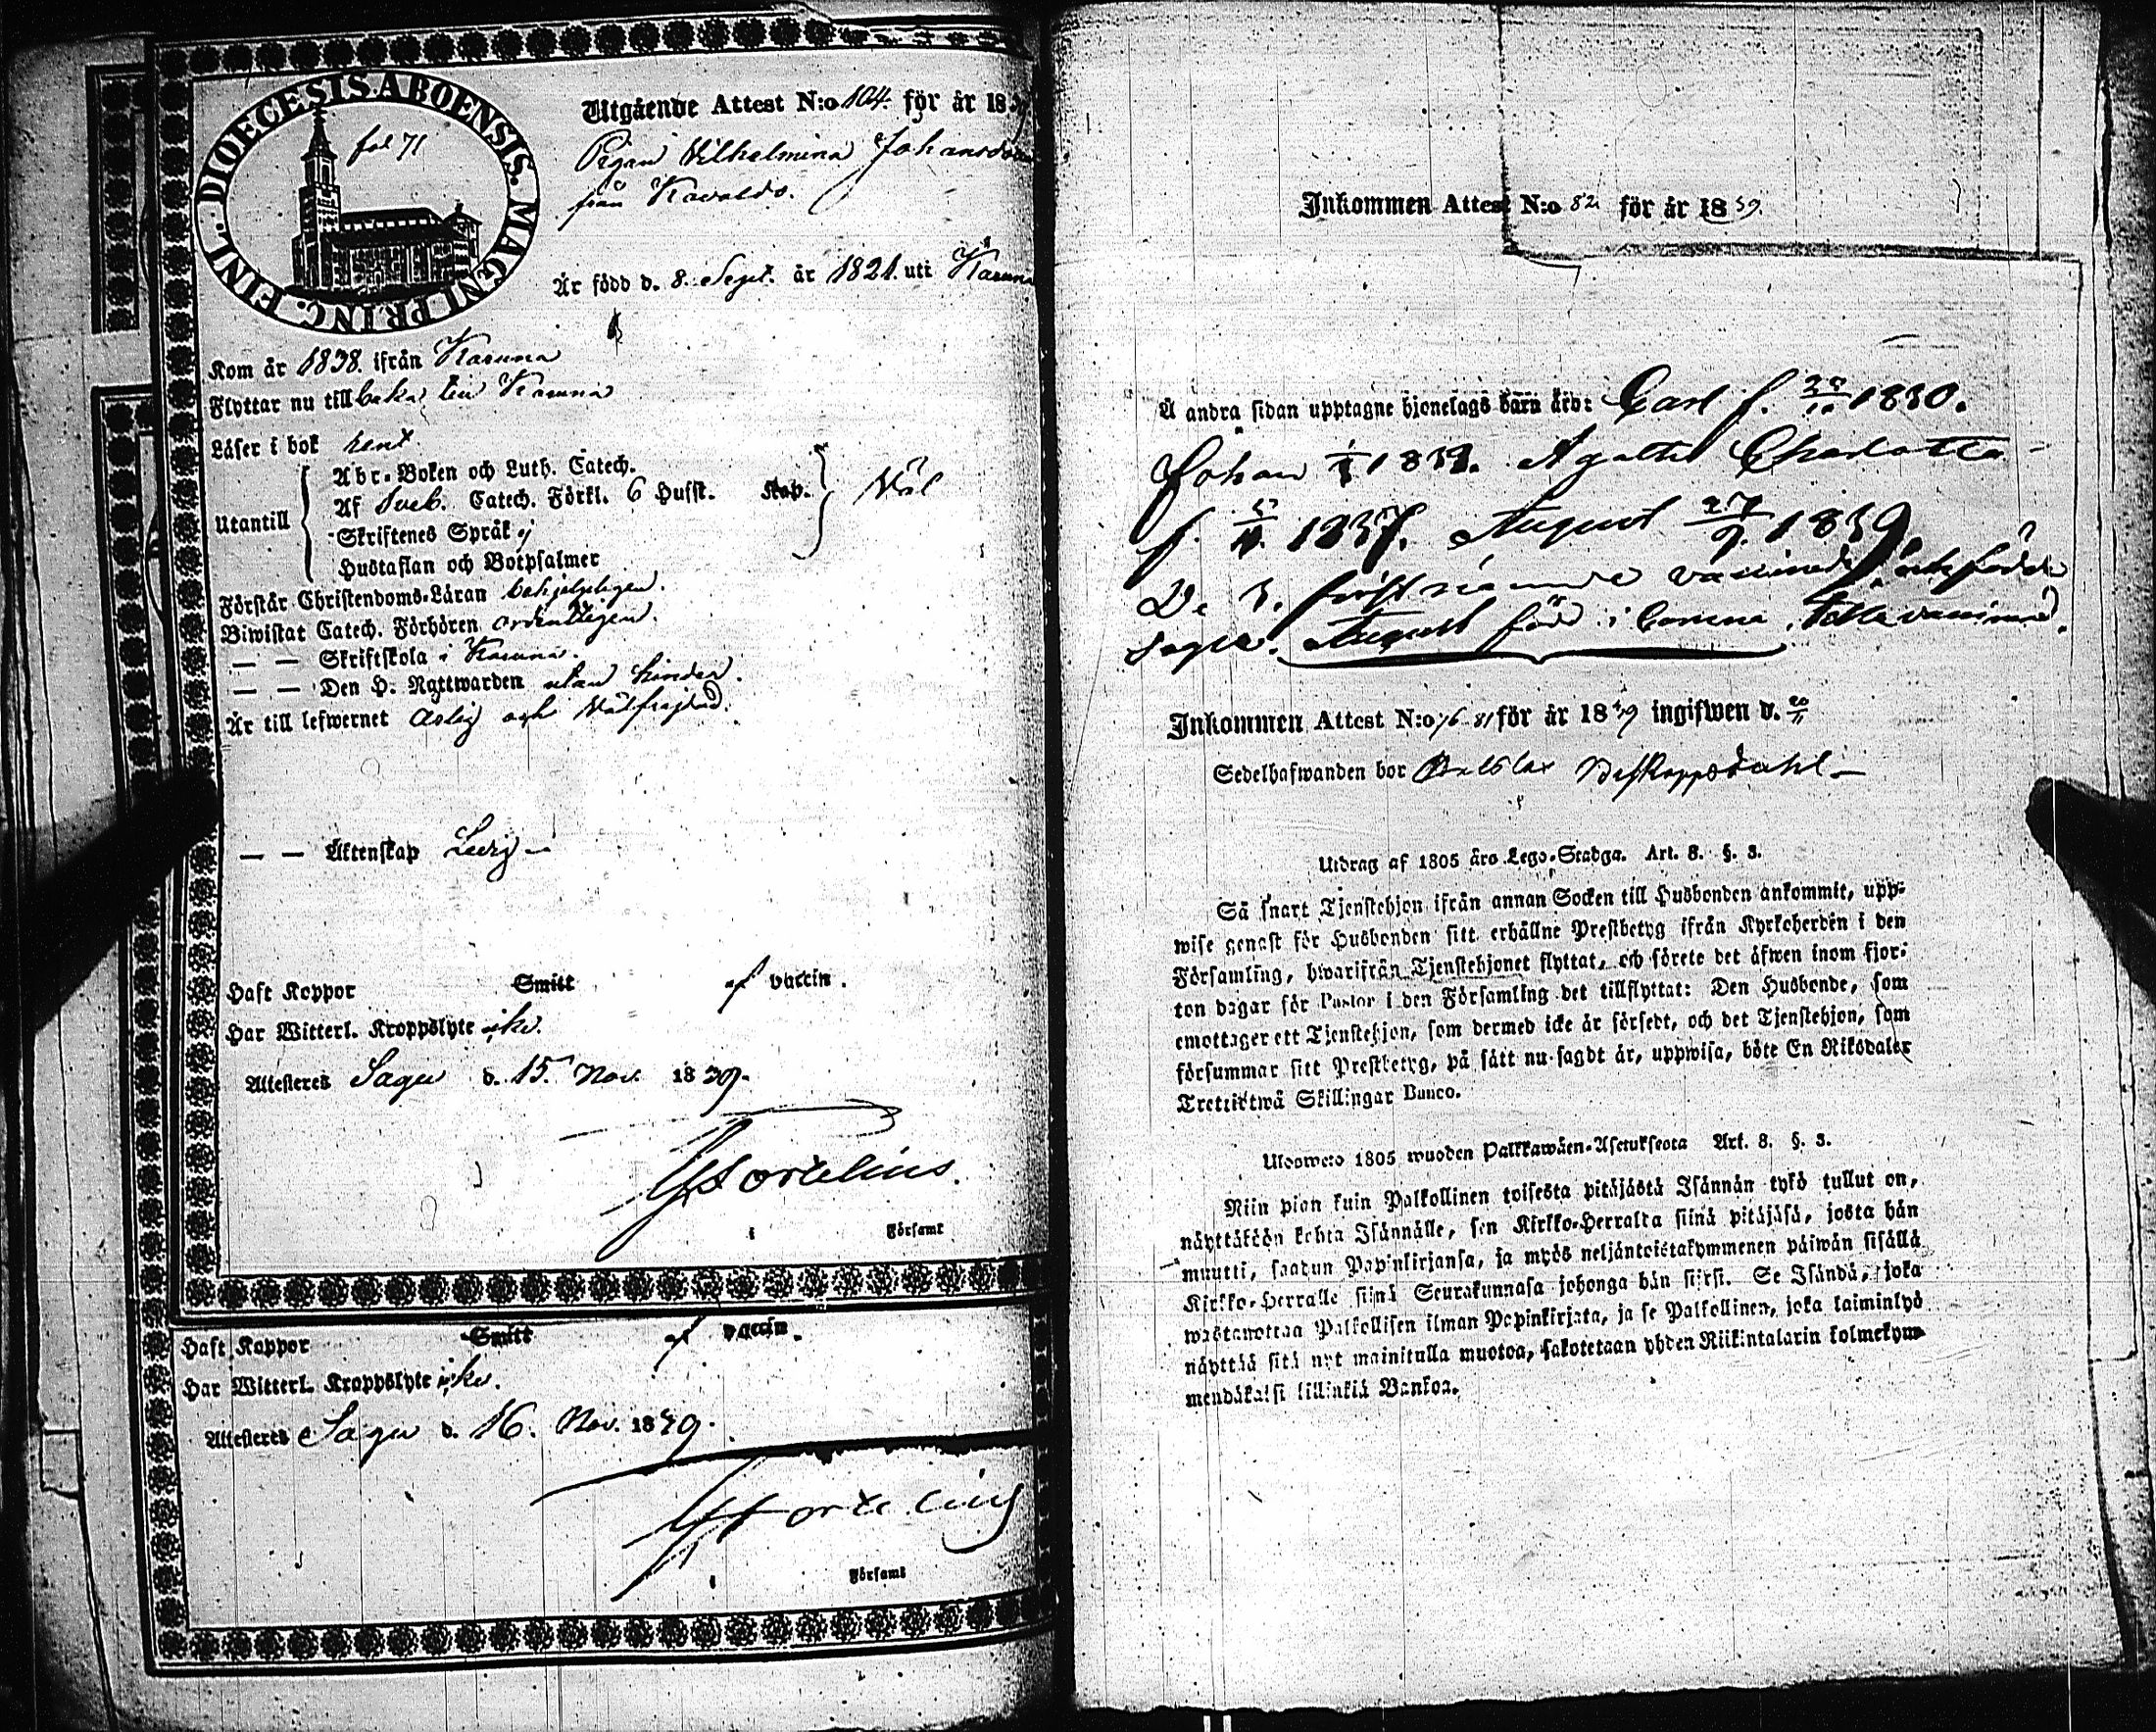 DIOECESIS ABOENSIS. MAGNI PRINC. FINL.
fol 71
Utgående Attest N:o 104. för år 18
Pigan Wilhelmina Johansdotter
från
Är född d. 8. Sept. år 1821. uti Karuna
Kom år 1838. ifrån Karuna
Flyttar nu till baka till Karuna
Läser i bok rent
Utantill
Abc-Boken och Luth. Catech.
Af Sveb. Catech. Förkl. 6 Hufst. Kap. Väl
Skriftenes Språk ej
Hustaflan och Botpsalmer
Förstår Christendoms-Läran behjelpligen.
Biwistat Catech. Förhören ordentligen.
— — Skriftskola i Karuna.
— — Den H. Nattwarden utan hinder.
Är till lefwernet ärlig och Välfrejdad.
— — Äktenskap Ledig —
Haft Koppor Smitt af vaccin.
Har Witterl. Kroppslyte icke.
Attesteras Sagu d. 15. Nov. 1839.
Församl
Haft Koppor Smitt af vaccin.
Har Witterl. Kroppslyte icke.
Attesteras Sagu d. 16. Nov. 1839.
Församl
Inkommen Attest N:o 82 för år 1839.
Å andra sidan upptagne hjonelags barn äro: Carl f. 1830.
Johan Agatha Charlotta
f. 1837. August 27/9 1839
De 3. förstnämnde vaccinerade
August född i Coruna,
Inkommen Attest N:o 76 81 för år 1839 ingifwen d. 20/11
Sedelhafwanden bor
Utdrag af 1805 års Lego-Stadga. Art. 8. §. 3.
Så snart Tjenstehjon ifrån annan Socken till Husbonden ankommit, upp-
wise genast för Husbonden sitt erhållne Prestbetyg ifrån Kyrkoherden i den
Församling, hwarifrån Tjenstehjonet flyttat, och förete det äfwen inom fjor-
ton dagar för Pastor i den Församling det tillflyttat: Den Husbonde, som
emottager ett Tjenstehjon, som dermed icke är försedt, och det Tjenstehjon, som
försummar sitt Prestbetyg, på sätt nu sagdt är, uppwisa, böte En Riksdaler
Trettiotwå Skillingar Banco.
Ulosweto 1805 wuoden Palkkawäen-Asetuksesta Art. 8. §. 3.
Niin pian kuin Palkollinen toisesta pitäjästä Isännän tykö tullut on,
näyttäköön kohta Isännälle, sen Kirkko-Herralta siinä pitäjäsä, josta hän
muutti, saadun Papinkirjansa, ja myös neljäntoistakymmenen päiwän sisällä
Kirkko-Herralle siinä Seurakunnasa johonga hän siirsi. Se Isändä, joka
wastanottaa Palkollisen ilman Papinkirjata, ja se Palkollinen, joka laiminlyö
näyttää sitä nyt mainitulla muotoa, sakotetaan yhden Riikintalarin kolmekym-
mendäkaksi killinkiä Bankoa.